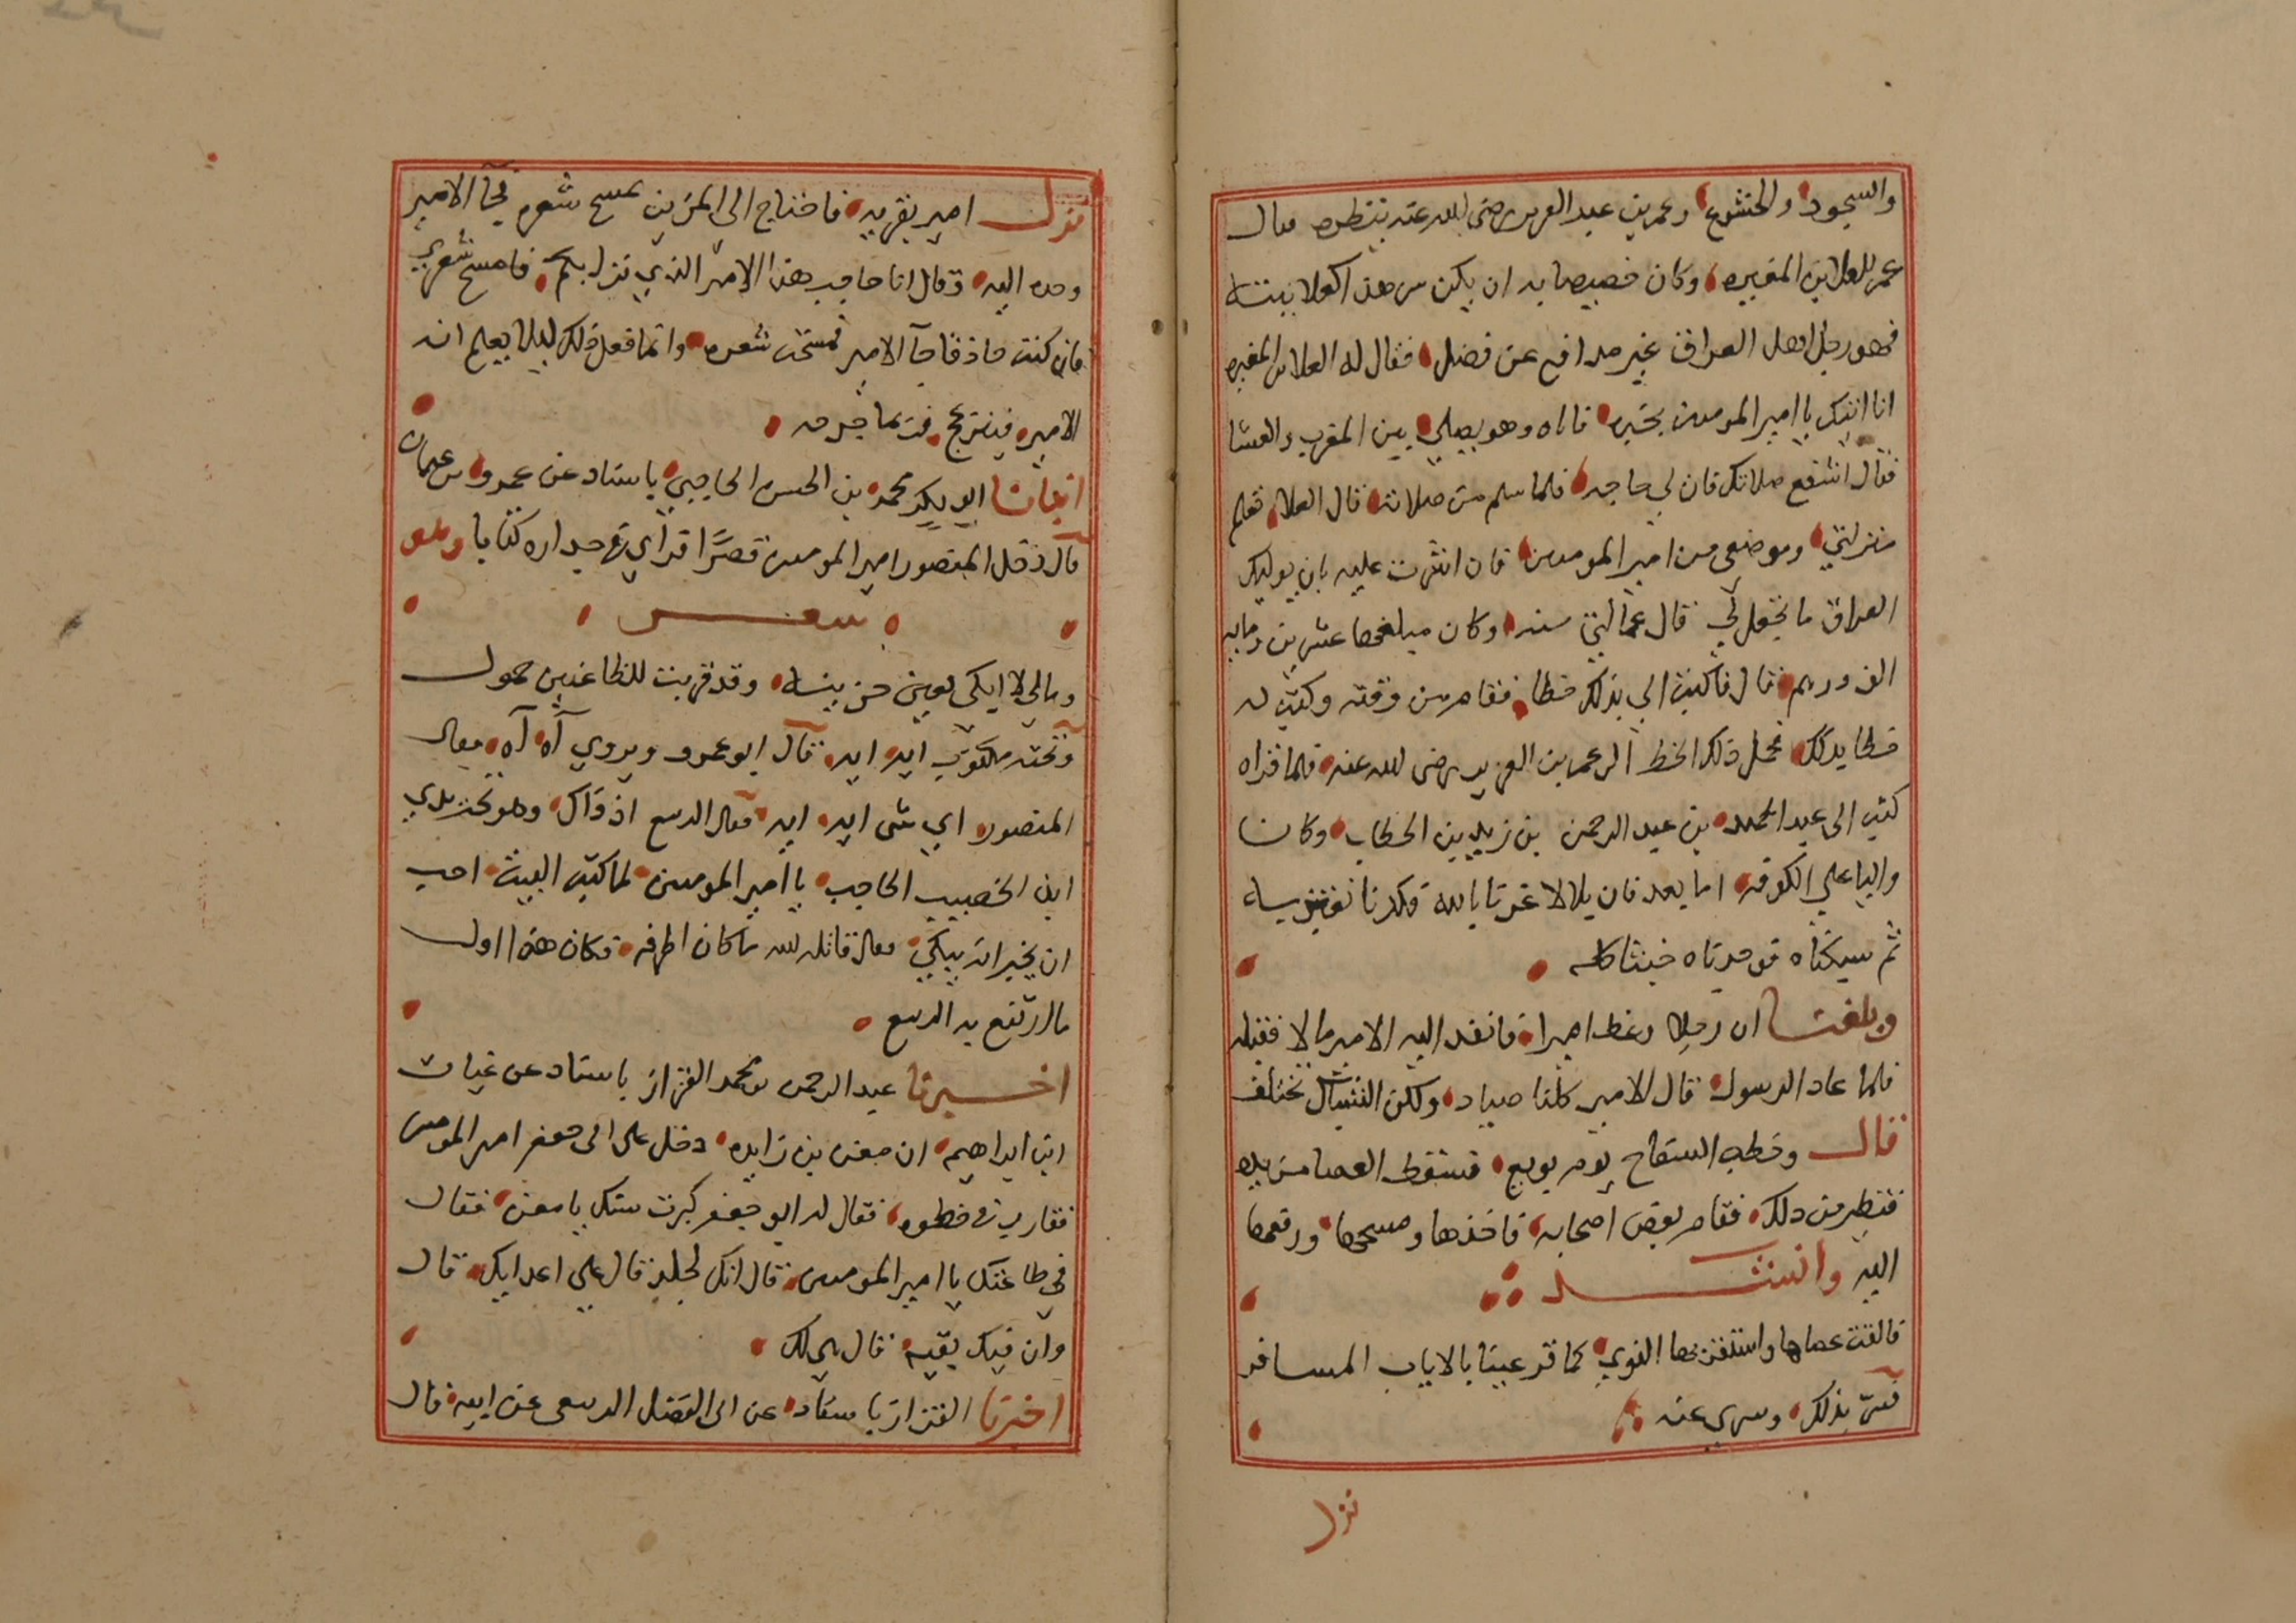 والسجود والخشوع وعمر بن عبد العزيز رضي الله عنه ينظره فقال
عمر للعلا بن المغيره وكان خصيصا به ان يكن سر هذا كعلانيته
فهو رجل اهل العراق غير مدافع عن فضل فقال له العلا بن المغيره
انا اتيك يا امير المومنين بخبره فاتاه وهو يصلي بين المغرب والعشا
فقال اشفع صلاتك فان لي حاجه فلما سلم من صلاته قال العلا تعلم
منزلتي وموضعي من امير المومنين فان اشرت عليه بان يوليك
العراق ما تجعل لي قال عمالتي سنه وكان مبلغها عشرين ومايه
الف درهم قال فاكتب الي بذلك خطا فقام من وقته وكتب له
خطا بذلك فحمل ذلك الخط الى عمر بن العزيز رضي الله عنه فلما قراه
كتب الى عبد الحميد بن عبد الرحمن بن زيد بن الخطاب وكان
واليا على الكوفه اما بعد فان بلالا غرنا بالله فكدنا نغتر به
ثم سبكناه فوجدناه خبثا كله
وبلغنا ان رجلا وعظ اميرا فانفذ اليه الامير مالا فقبله
فلما عاد الرسول قال الامير كلنا صياد ولكن الشباك تختلف
قال وخطب السفاح يوم بويع فسقط العصا من يده
فتطير من ذلك فقام بعض اصحابه فاخذها ومسحها ودفعها
اليه وانشد
فالقت عصاها واستقر بها النوي كما قر عينا بالاياب المسافر
فسر بذلك وسري عنه
نزل
نزل امير بقريه فاحتاج الى المزين يمسح شعره فجا الامير
وحده اليه وقال انا حاجب هذا الامير الذي نزل بكم فامسح شعري
فان كنت حاذقا جا الامير فمسحت شعره وانما فعل ذلك ليلا يعلم انه
الامير فينزعج فربما جرحه
انبانا ابو بكر محمد بن الحسن الحاجبي باسناد عن عمرو بن عثمان
قال دخل المنصور امير المومنين قصرا فراي في جداره كتابا وهو
شعر
ومالي لا ابكي بعين حزينه وقد قربت للظاعنين حمول
وتحته مكتوب ايه ايه قال ابو عمرو ويروي آه آه فقال
المنصور اي شي ايه ايه فقال الربيع اذ ذاك وهو تحت يدي
ابن الخصيب الحاجب يا امير المومنين لما كتب البيت احب
ان يخبر انه يبكي فقال قاتله الله ما كان اظرفه فكان هذا اول
ما ارتفع به الربيع
اخبرنا عبد الرحمن بن محمد القزاز باسناد عن غياث
ابن ابراهيم ان معن بن زايده دخل على ابي جعفر امير المومنين
فقارب في خطوه فقال له ابو جعفر كبرت سنك يا معن فقال
في طاعتك يا امير المومنين قال انك لجلد قال على اعدايك قال
وان فيك بقيه قال هي لك
اخبرنا القزاز باسناد عن ابي الفضل الربعي عن ابيه قال